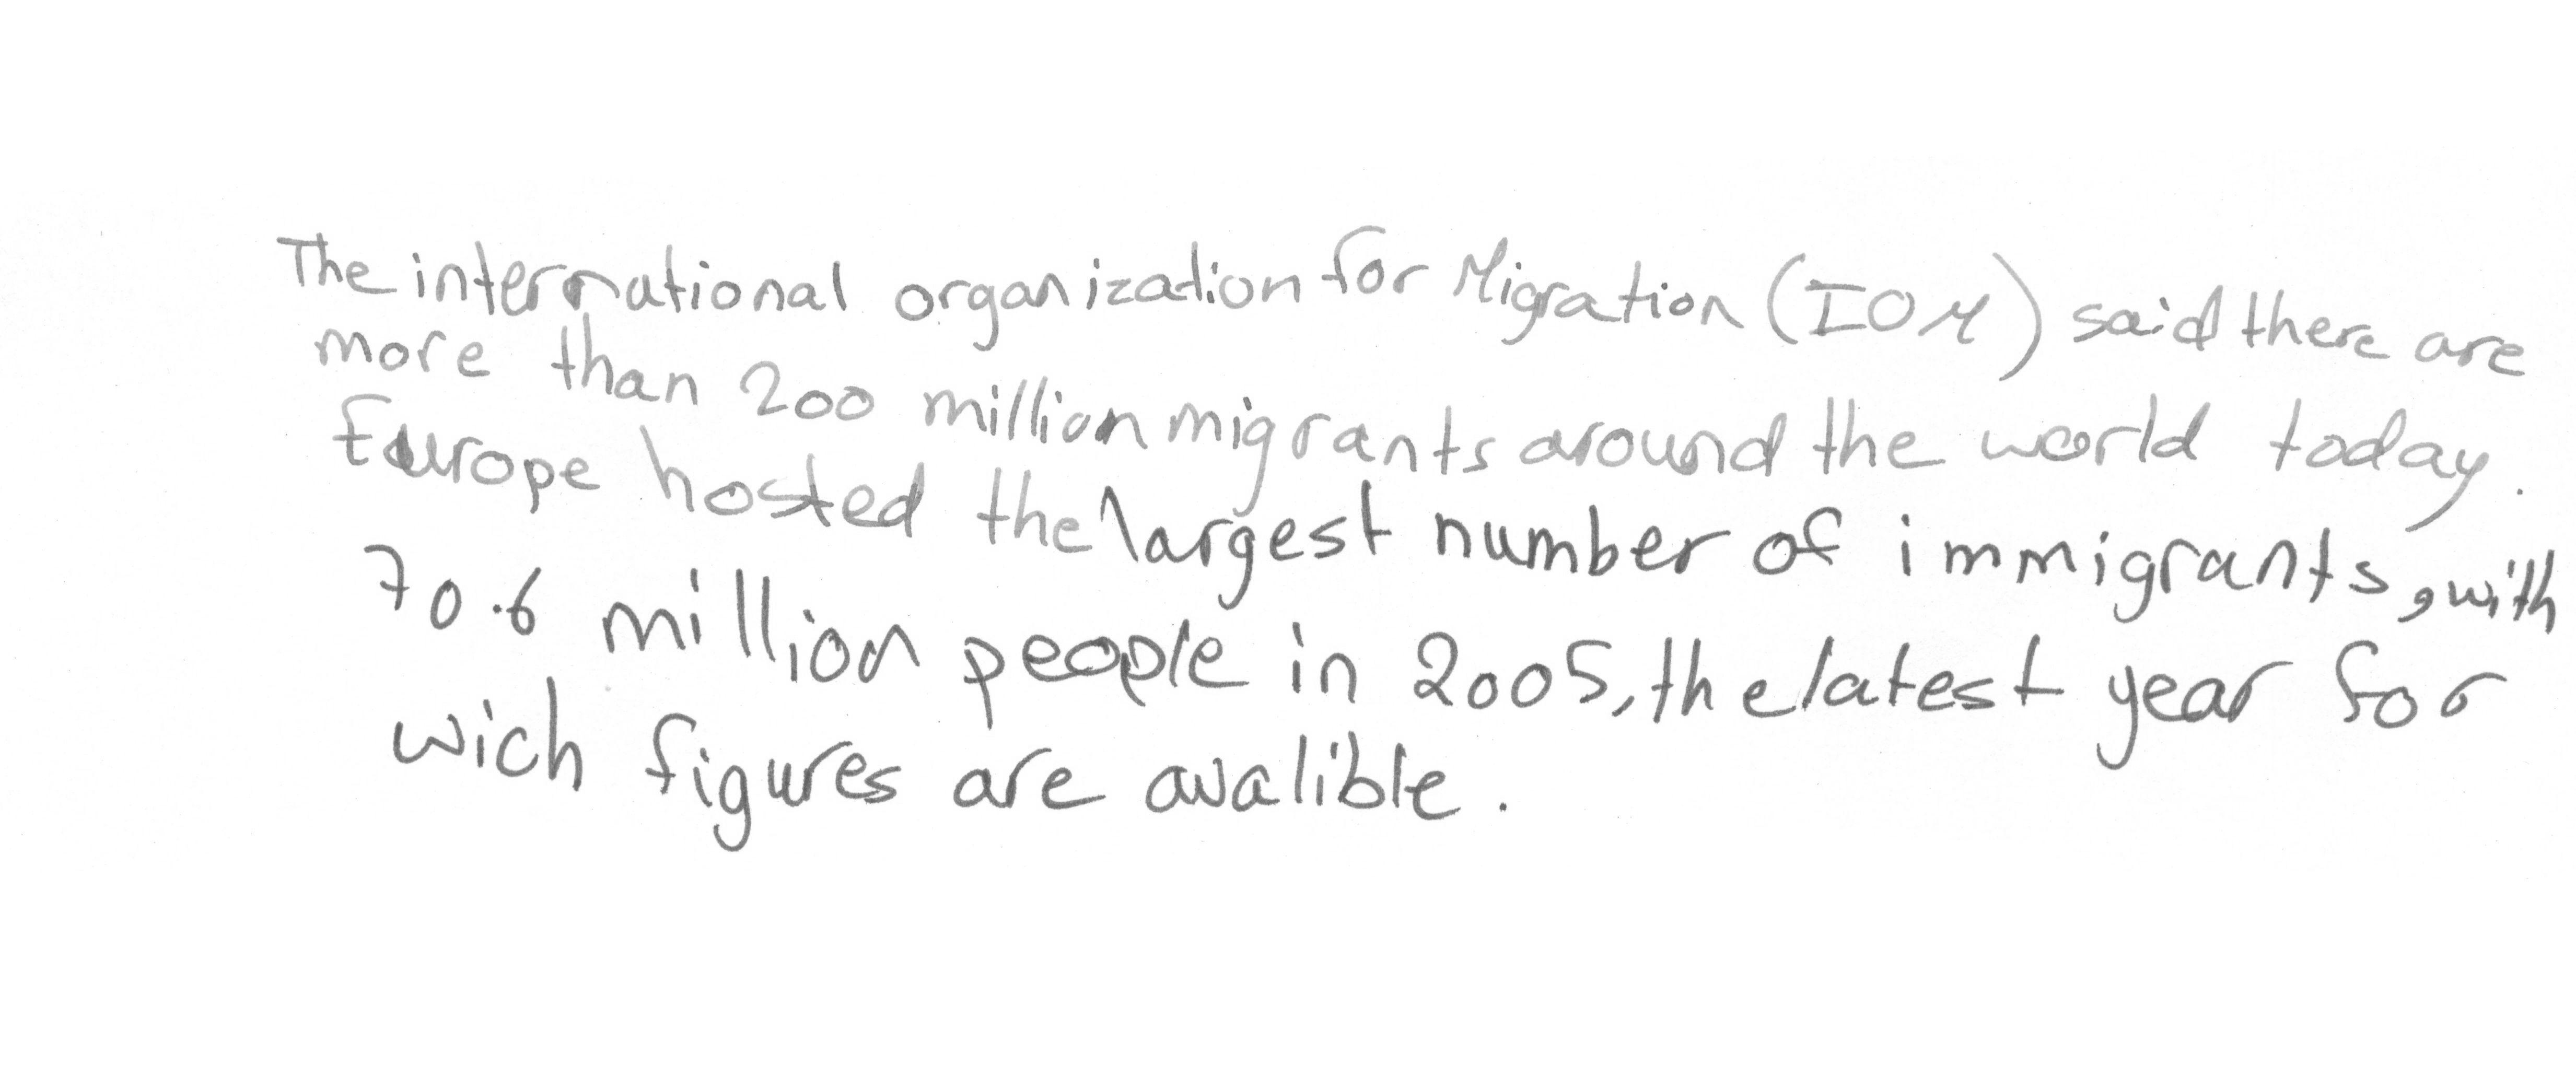 The international organization for Migration (IOM) said there are
more than 200 million migrants around the world today.
Europe hosted the largest number of immigrants, with
70.6 million people in 2005, the latest year for
wich figures are avalible.